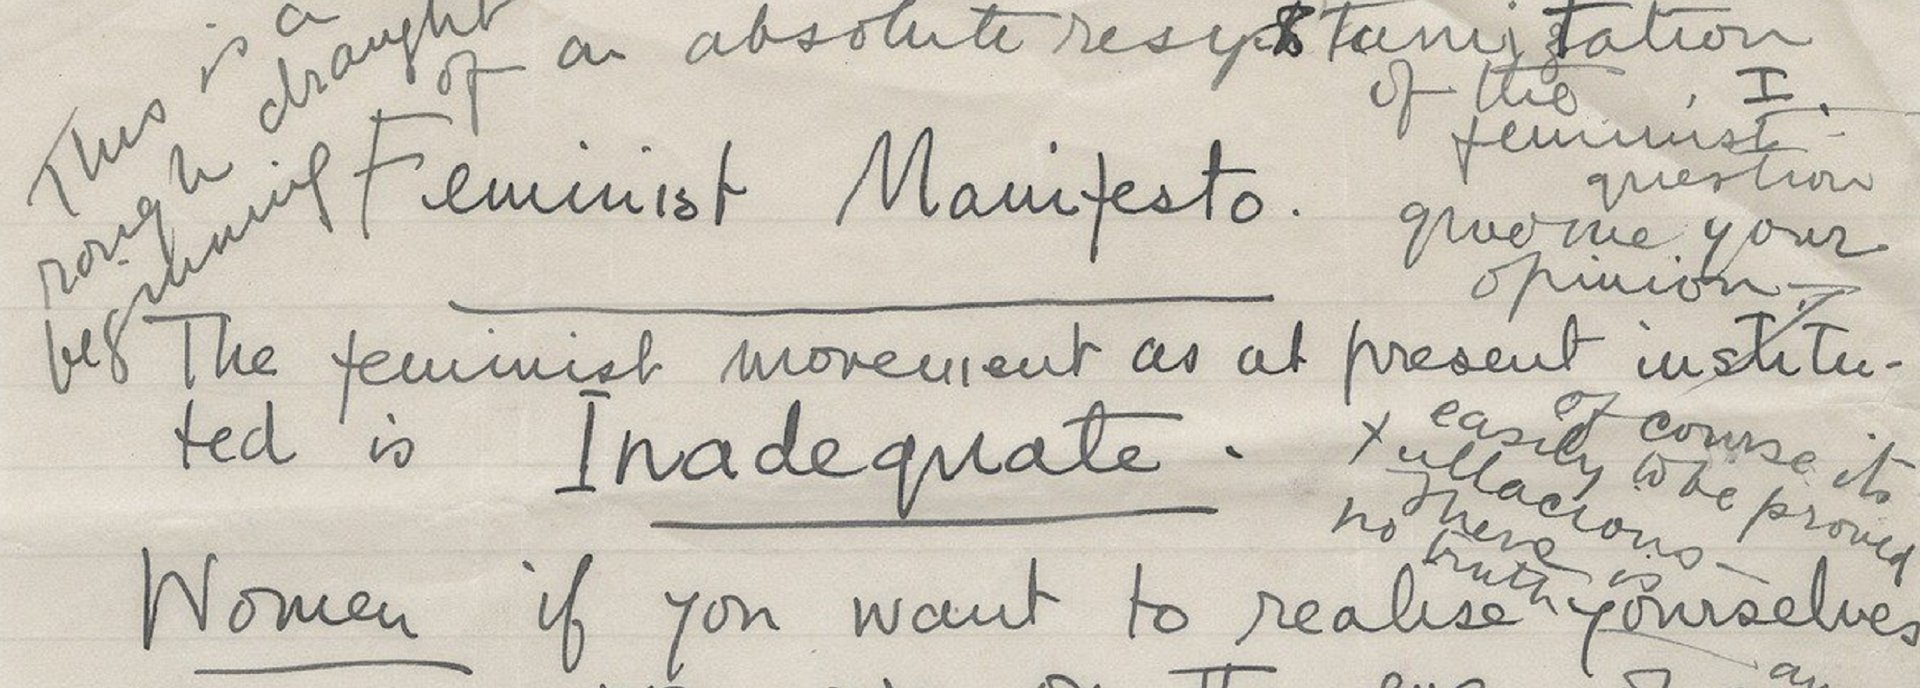 This is a
rough draught
beginning
of an absolute resystamitation
of the
feminist
question
give me your
opinion
I.
Feminist Manifesto.
The feminist movement as at present institu-
ted is Inadequate.
x of course its
easily to be proved
fallacious
There is
no truth
Women if you want to realise yourselves